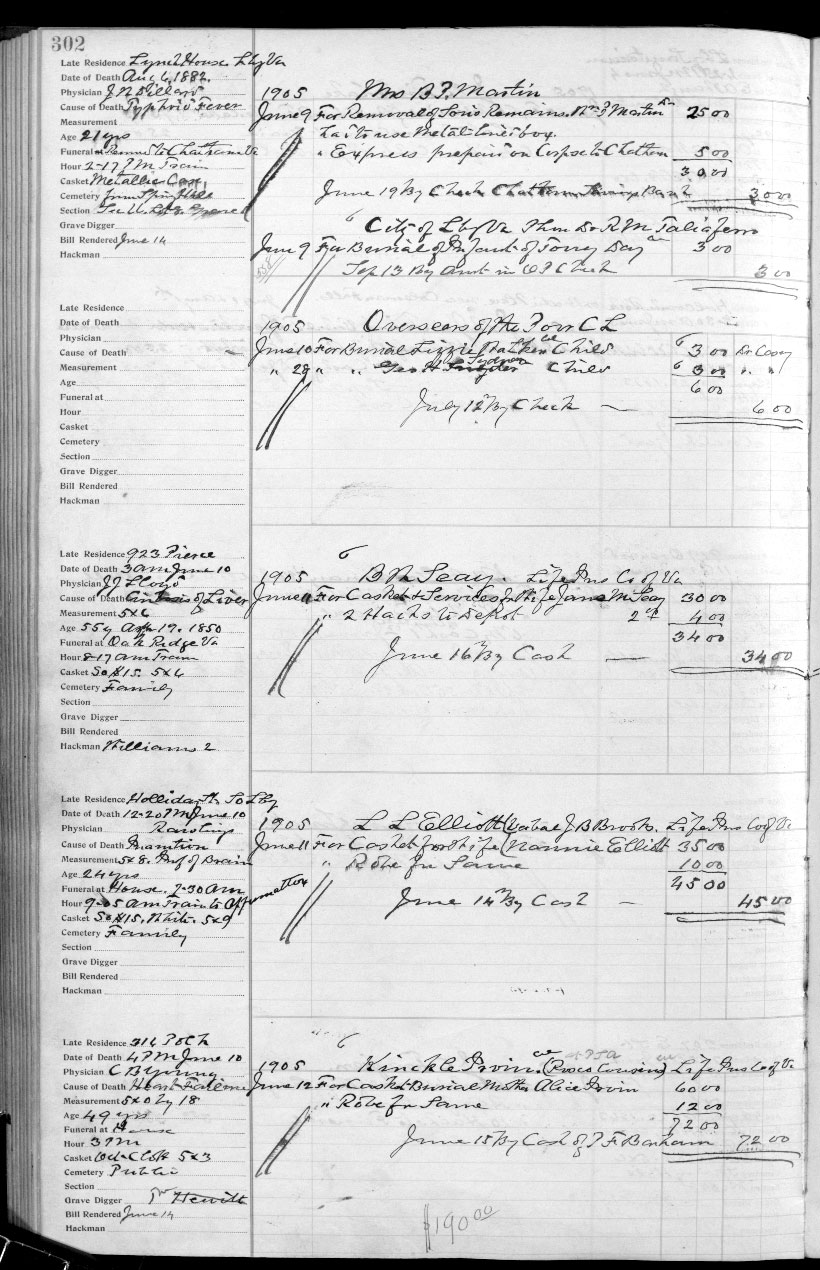 302
Late Residence Lynch House Lbg Va
Date of Death Aug 6, 1882.
Physician J N Dillard
Cause of Death Typhoid Fever
Measurement
Age 21 yrs
Funeral at Chatham Va
Hour 2-17 P M Train
Casket Metallic Case
Cemetery from Spring Hill
Section
Grave Digger
Bill Rendered June 14
Hackman
1905 Mrs B. P. Martin
June 9 For Removal of Sons Remains. Martin 25 00
" Express prepaid on Corpse to Chatham 5 00
30 00
June 19 By Check Chatham Bank 30 00
City of Lbg Va Thru Dr R M Taliaferro
June 9 For Burial of Infant of Tony Day 3 00
Sep 13 By amt in Check 3 00
Late Residence
Date of Death
Physician
Cause of Death
Measurement
Age
Funeral at
Hour
Casket
Cemetery
Section
Grave Digger
Bill Rendered
Hackman
1905 Overseers of the Poor C L
June 10 For Burial Lizzie Child 6 3 00 Dr Casey
" 28 " " Geo H Snyder Sydnor Child 6 3 00 " "
6 00
July 12th By Check — 6 00
Late Residence 923 Pierce
Date of Death 3 am June 10
Physician J J Lloyd
Cause of Death of Liver
Measurement 5x6
Age 55 y Apr 19. 1850
Funeral at Oak Ridge Va
Hour 8-17 am Train
Casket So #15. 5x6
Cemetery Family
Section
Grave Digger
Bill Rendered
Hackman Williams 2
6
1905 B M Seay. Life Ins Co of Va
June 11 For Casket & Services for Wife Jane M Seay 30 00
" 2 Hacks to Depot 2 4 00
34 00
June 16th By Cash — 34 00
Late Residence Holliday St So Lbg
Date of Death 12-20 P M June 10
Physician Rawlings
Cause of Death Inanition
Measurement 5x8. Inf of Brain
Age 24 yrs
Funeral at House. 7-30 am
Hour 9-05 am Train to Appomattox
Casket So #15, White. 5x9
Cemetery Family
Section
Grave Digger
Bill Rendered
Hackman
1905 L L Elliott J B Brooks. Life Ins Co of Va
June 11 For Casket for Wife (Nannie Elliott 35 00
" Robe for Same 10 00
45 00
June 14th By Cash — 45 00
Late Residence 314 Polk
Date of Death 4 P M June 10
Physician C B Young
Cause of Death Heart Failure
Measurement 5x0 by 18
Age 49 yrs
Funeral at House
Hour 3 P M
Casket Cloth 5x3
Cemetery Public
Section
Grave Digger Hewitt
Bill Rendered June 14
Hackman
6
1905 Kinckle Irvin. (Rosco Cousins) Life Ins Co of Va
June 12 For Casket & Burial Mother Alice Irvin 60 00
" Robe for Same 12 00
72 00
June 15 By Cash of P F Bonham 72 00
$190 00